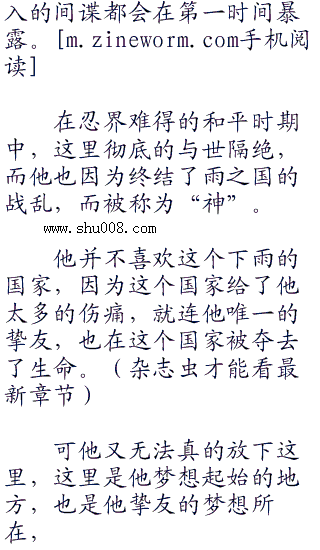 入的间谍都会在第一时间暴
露。[m.zineworm.com手机阅
读]
在忍界难得的和平时期
中，这里彻底的与世隔绝，
而他也因为终结了雨之国的
战乱，而被称为“神”。
www.shu008.com
他并不喜欢这个下雨的
国家，因为这个国家给了他
太多的伤痛，就连他唯一的
挚友，也在这个国家被夺去
了生命。（杂志虫才能看最
新章节）
可他又无法真的放下这
里，这里是他梦想起始的地
方，也是他挚友的梦想所
在，